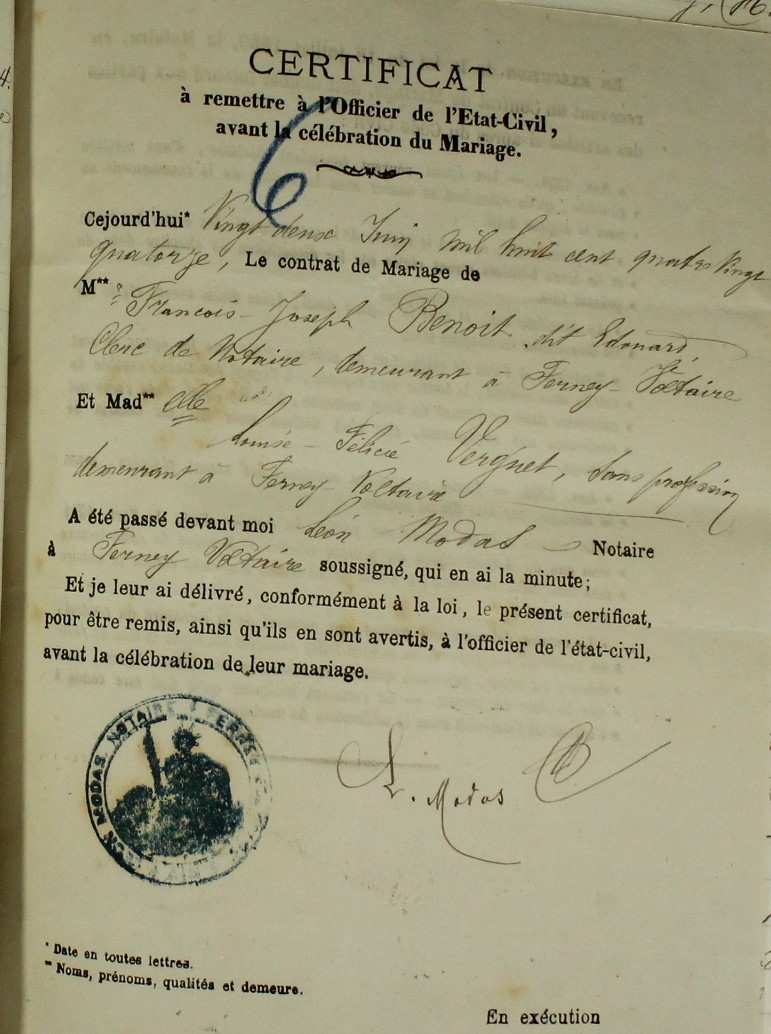 CERTIFICAT
à remettre à l'Officier de l'Etat-Civil,
avant la célébration du Mariage.
6
Cejourd'hui* Vingt deux Juin mil huit cent quatre vingt
quatorze, Le contrat de Mariage de
M** r François-Joseph Benoit, dit Edouard,
Clerc de Notaire, demeurant à Ferney-Voltaire
Et Mad** elle
Louise-Félicie Vergnet, sans profession
demeurant à Ferney Voltaire
A été passé devant moi Léon Modas Notaire
à Ferney Voltaire soussigné, qui en ai la minute;
Et je leur ai délivré, conformément à la loi, le présent certificat,
pour être remis, ainsi qu'ils en sont avertis, à l'officier de l'état-civil,
avant la célébration de leur mariage.
MODAS NOTAIRE À FERNEY
L. Modas
* Date en toutes lettres.
** Noms, prénoms, qualités et demeure.
En exécution